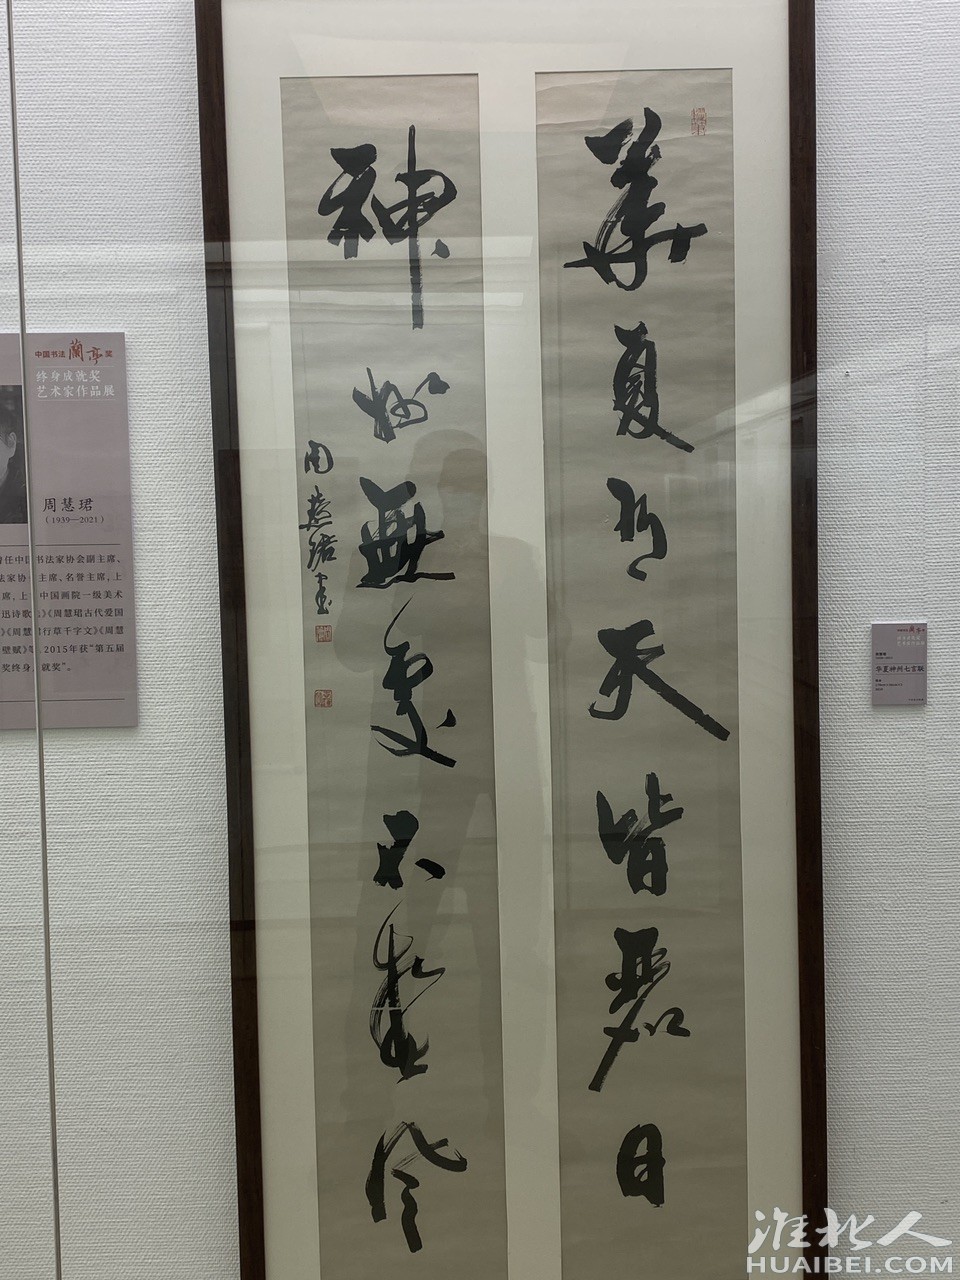 華夏有天皆麗日
神州無處不春風
周慧珺書
中国书法蘭亭奖
终身成就奖
艺术家作品展
周慧珺
(1939—2021)
任中国书法家协会副主席、
法家协 主席,名誉主席,上
席,上 中国画院一级美术
迅诗歌 》《周慧珺古代爱国
》《周慧珺行草千字文》《周慧
壁赋》 2015年获“第五届
奖终身 就奖”。
华夏神州七言联
淮北人
HUAIBEI.COM